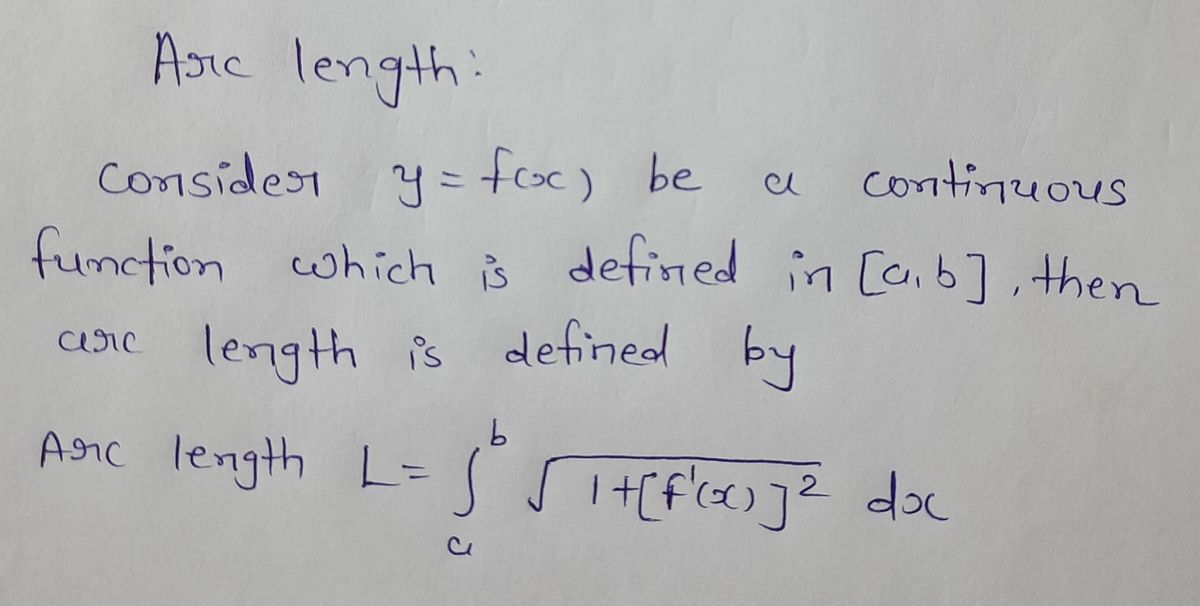 Arc length:
Consider y = f(x) be a continuous
function which is defined in [a,b], then
arc length is defined by
Arc length L = ∫ₐᵇ √(1+[f'(x)]²) dx